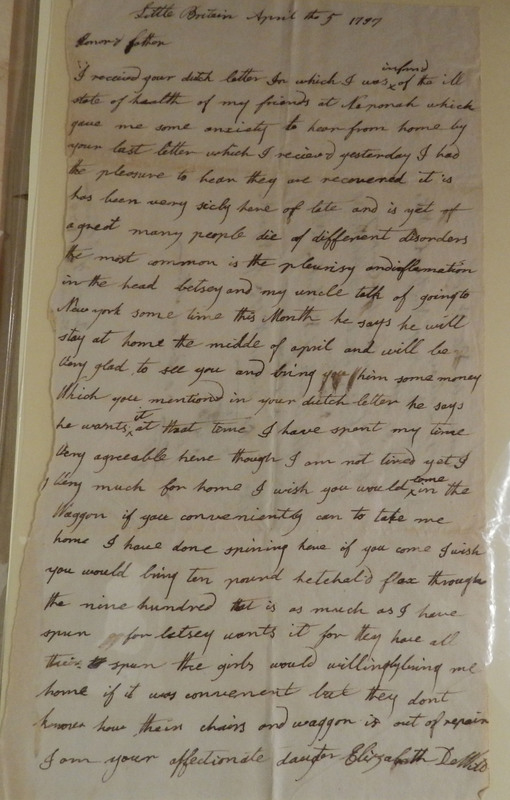 Little Britain April the 5 1797
Honor'd father
I receivd your dutch letter In which I was informd of the ill
state of health of my friends at Naponah which
gave me some anxiety to hear from home by
your last letter which I reciev'd yesterday I had
the pleasure to hear they are recovered it is
has been very sicly here of late and is yet
a great many people die of different disorders
the most common is the pleurisy and inflamation
in the head betsey and my uncle talk of going to
New york some time this Month he says he will
stay at home the middle of april and will be
Very glad to see you and bring him some money
Which you mentiond in your dutch letter he says
he wants it at that time I have spent my time
Very agreeable here though I am not tired yet I
Very much for home I wish you would come in the
Waggon if you conveniently can to take me
home I have done spining here if you come I wish
you would bring ten pound hetchal'd flax through
the nine hundred that is as much as I have
spun for betsey wants it for they have all
spun the girls would willingly bring me
home if it was convenient but they dont
know how their chairs and waggon is out of repair
I am your affectionate daugter Elizabeth DeWitt